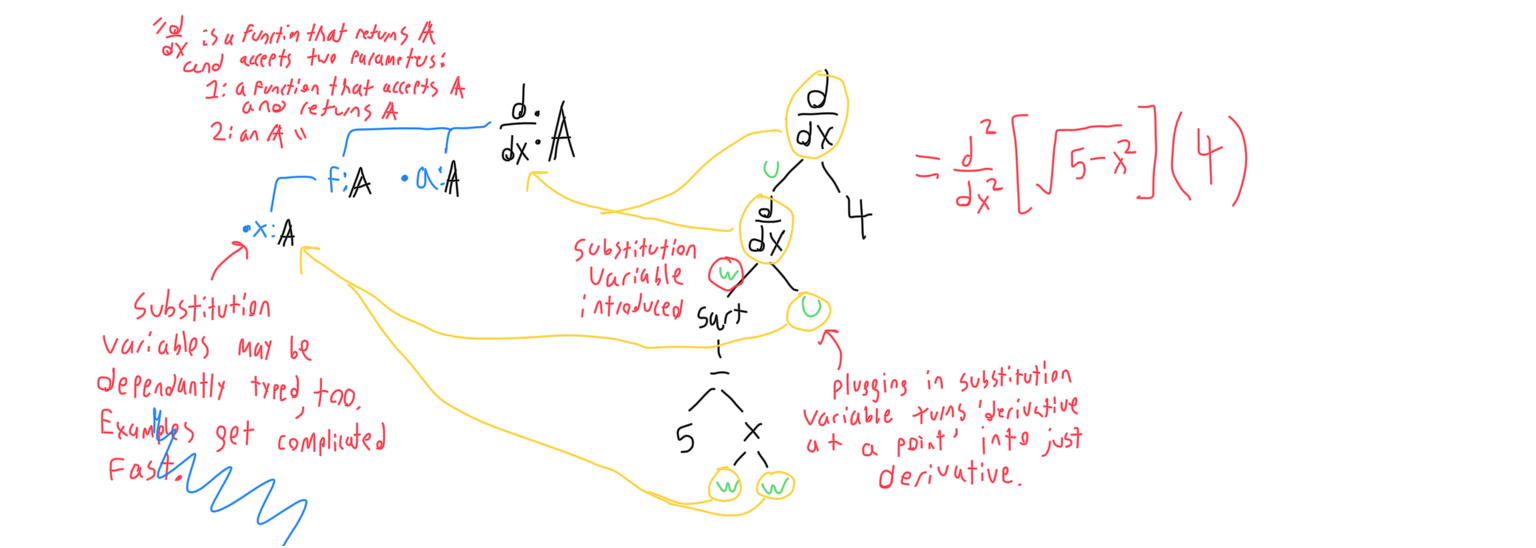 "d/dx is a function that returns 𝔸
and accepts two parameters:
1: a function that accepts 𝔸
and returns 𝔸
2: an 𝔸 "
d/dx : 𝔸
f:𝔸 •a:𝔸
•x:𝔸
Substitution
variables may be
dependantly typed, too.
Examples get complicated
Fast.
d/dx
U
4
d/dx
Substitution
Variable
introduced
w
U
sqrt
−
5
x
w w
plugging in substitution
variable turns 'derivative
at a point' into just
derivative.
= d²/dx² [√5-x²](4)